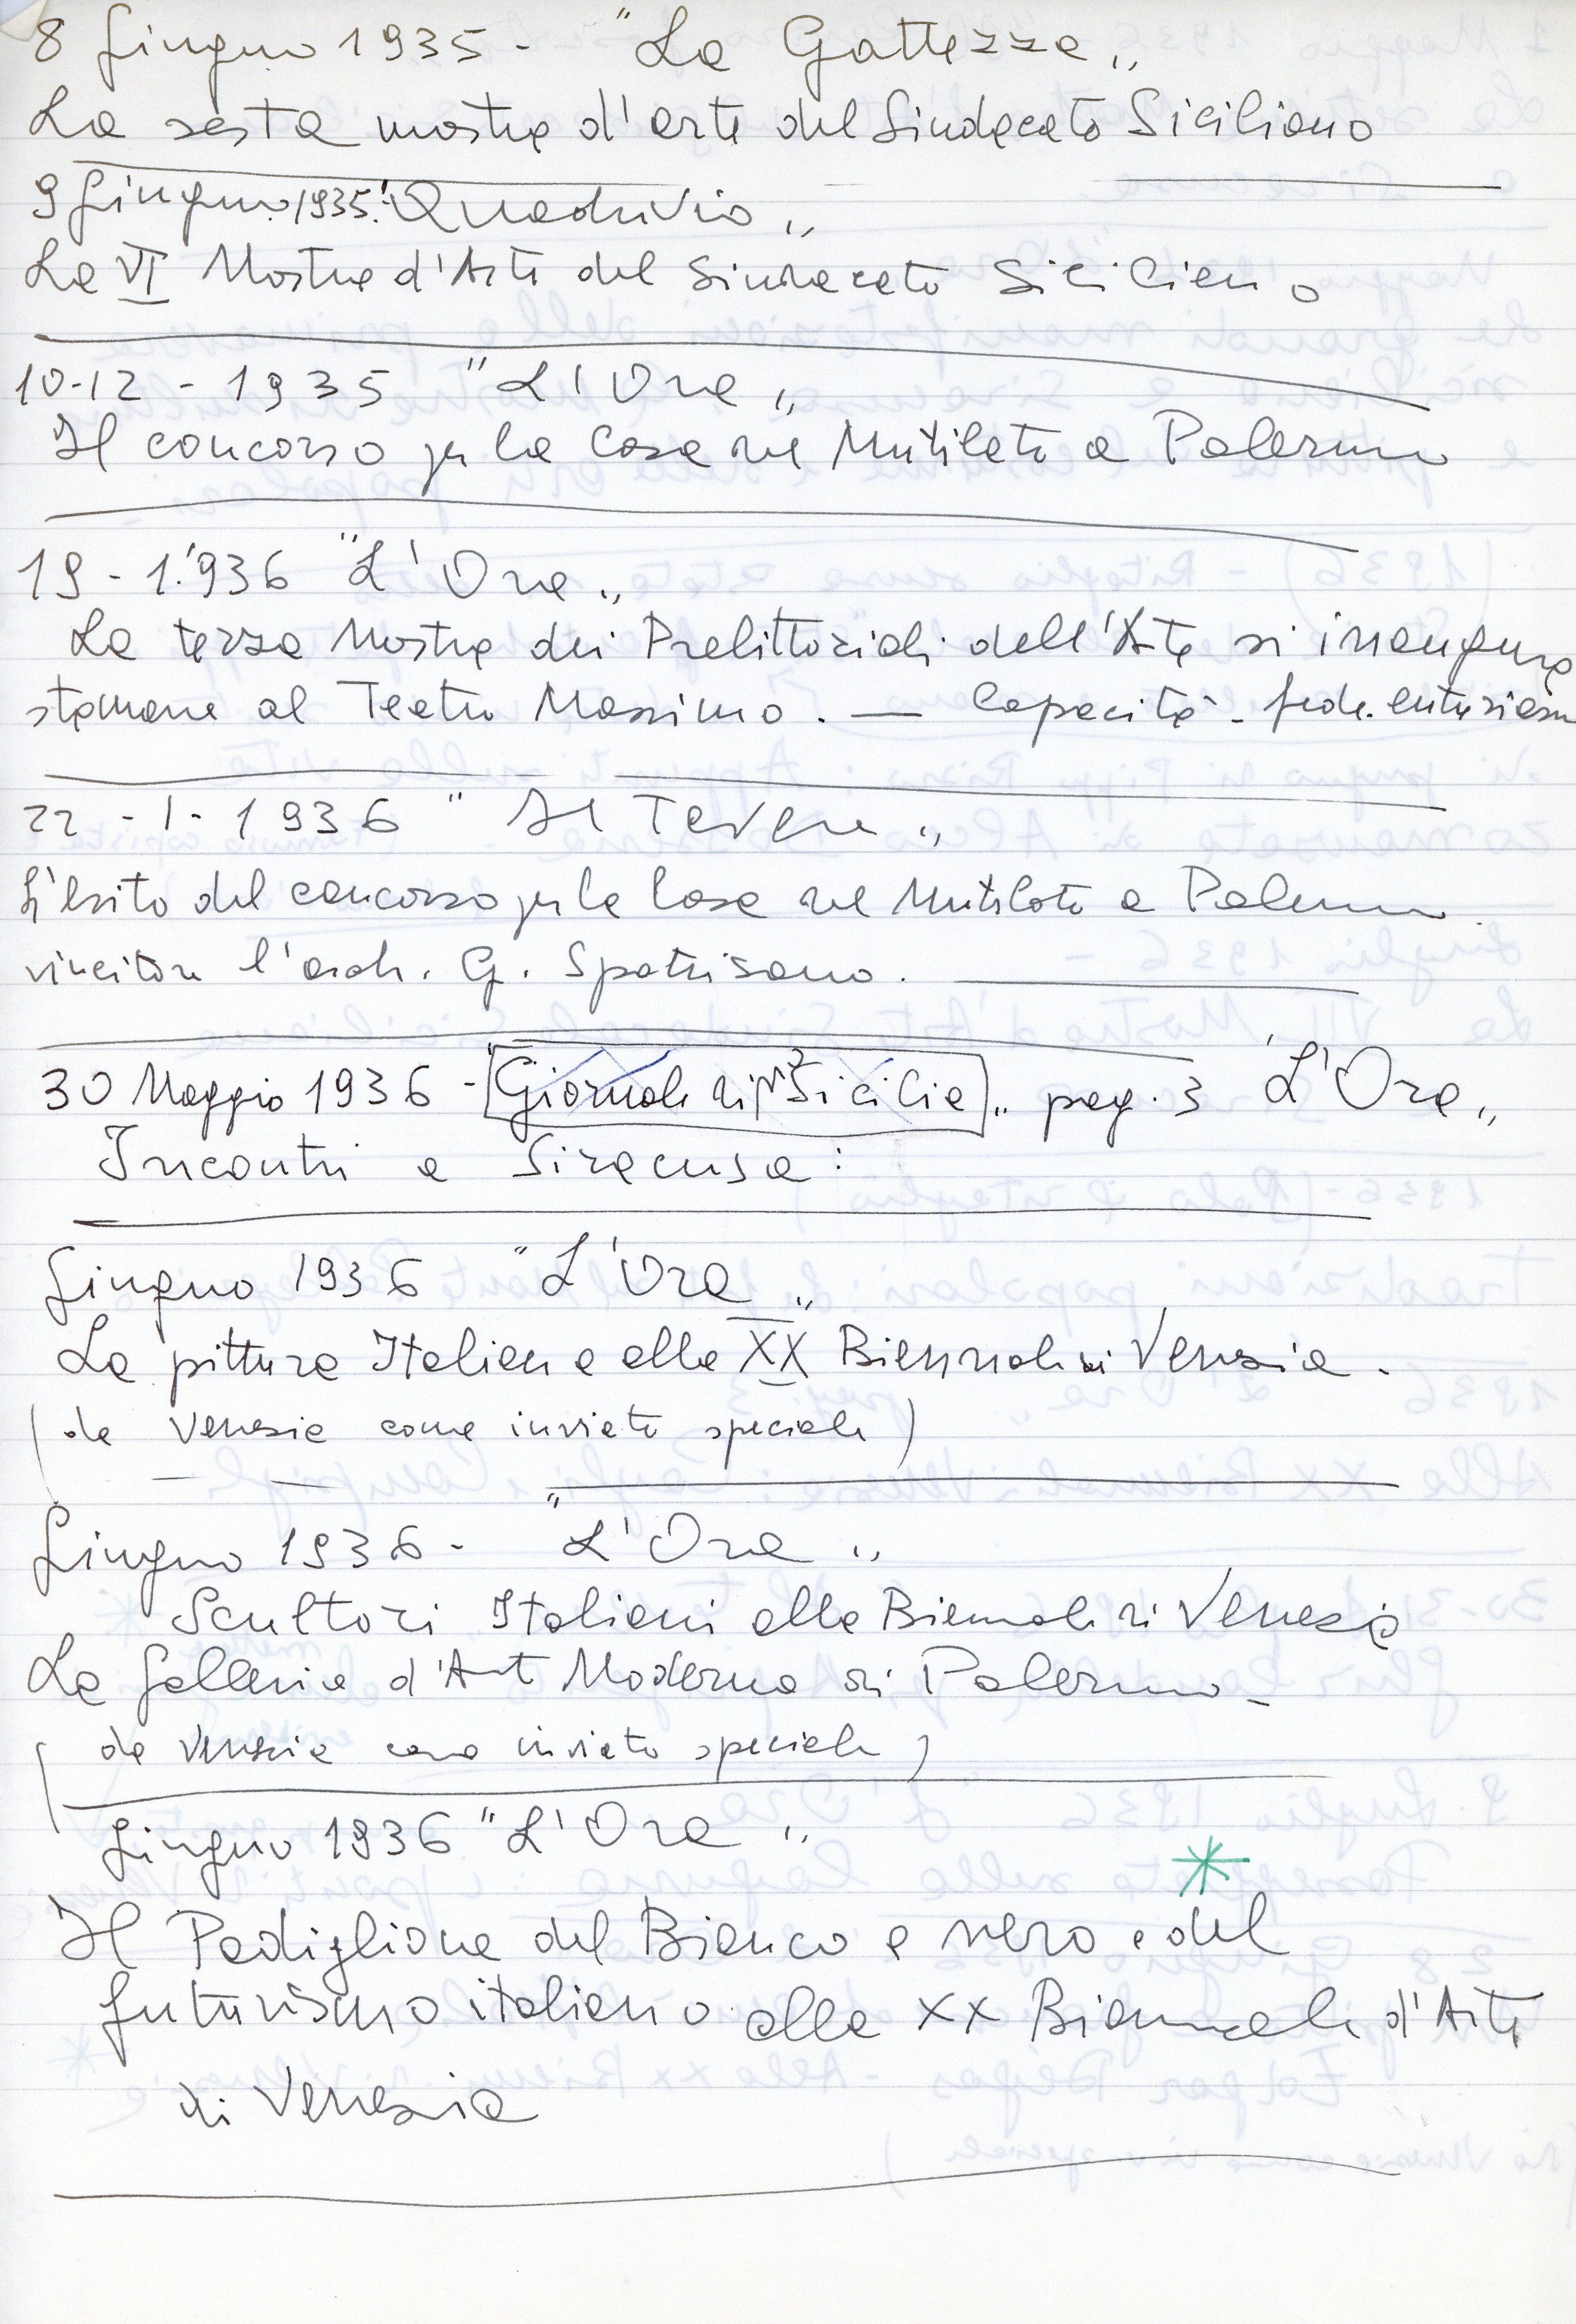 8 Giugno 1935 - "La Gattezza"
La sesta mostra d'arte del Sindacato Siciliano
9 Giugno 1935. "Quadrivio"
La VI Mostra d'Arte del Sindacato Siciliano
10-12-1935 "L'Ora"
Il concorso per la Casa del Mutilato a Palermo
19-1.'936 "L'Ora"
La terza Mostra dei Prelittoriali dell'Arte si inaugura
stamane al Teatro Massimo. — Capacità - fede. entusiasm
22-1-1936 "Il Tevere"
L'esito del concorso per la Casa del Mutilato a Palermo
vincitore l'arch. G. Spatrisano.
30 Maggio 1936 - "Giornale di Sicilia" pag. 3 "L'Ora"
Incontri a Siracusa:
Giugno 1936 "L'Ora"
La pittura Italiana alla XX Biennale di Venezia.
(da Venezia come inviato speciale)
Giugno 1936 - "L'Ora"
Scultori Italiani alla Biennale di Venezia
La Galleria d'Art Moderna di Palermo -
(da Venezia come inviato speciale)
Giugno 1936 "L'Ora"
*
Il Padiglione del Bianco e nero e del
futurismo italiano alla XX Biennale d'Arte
di Venezia